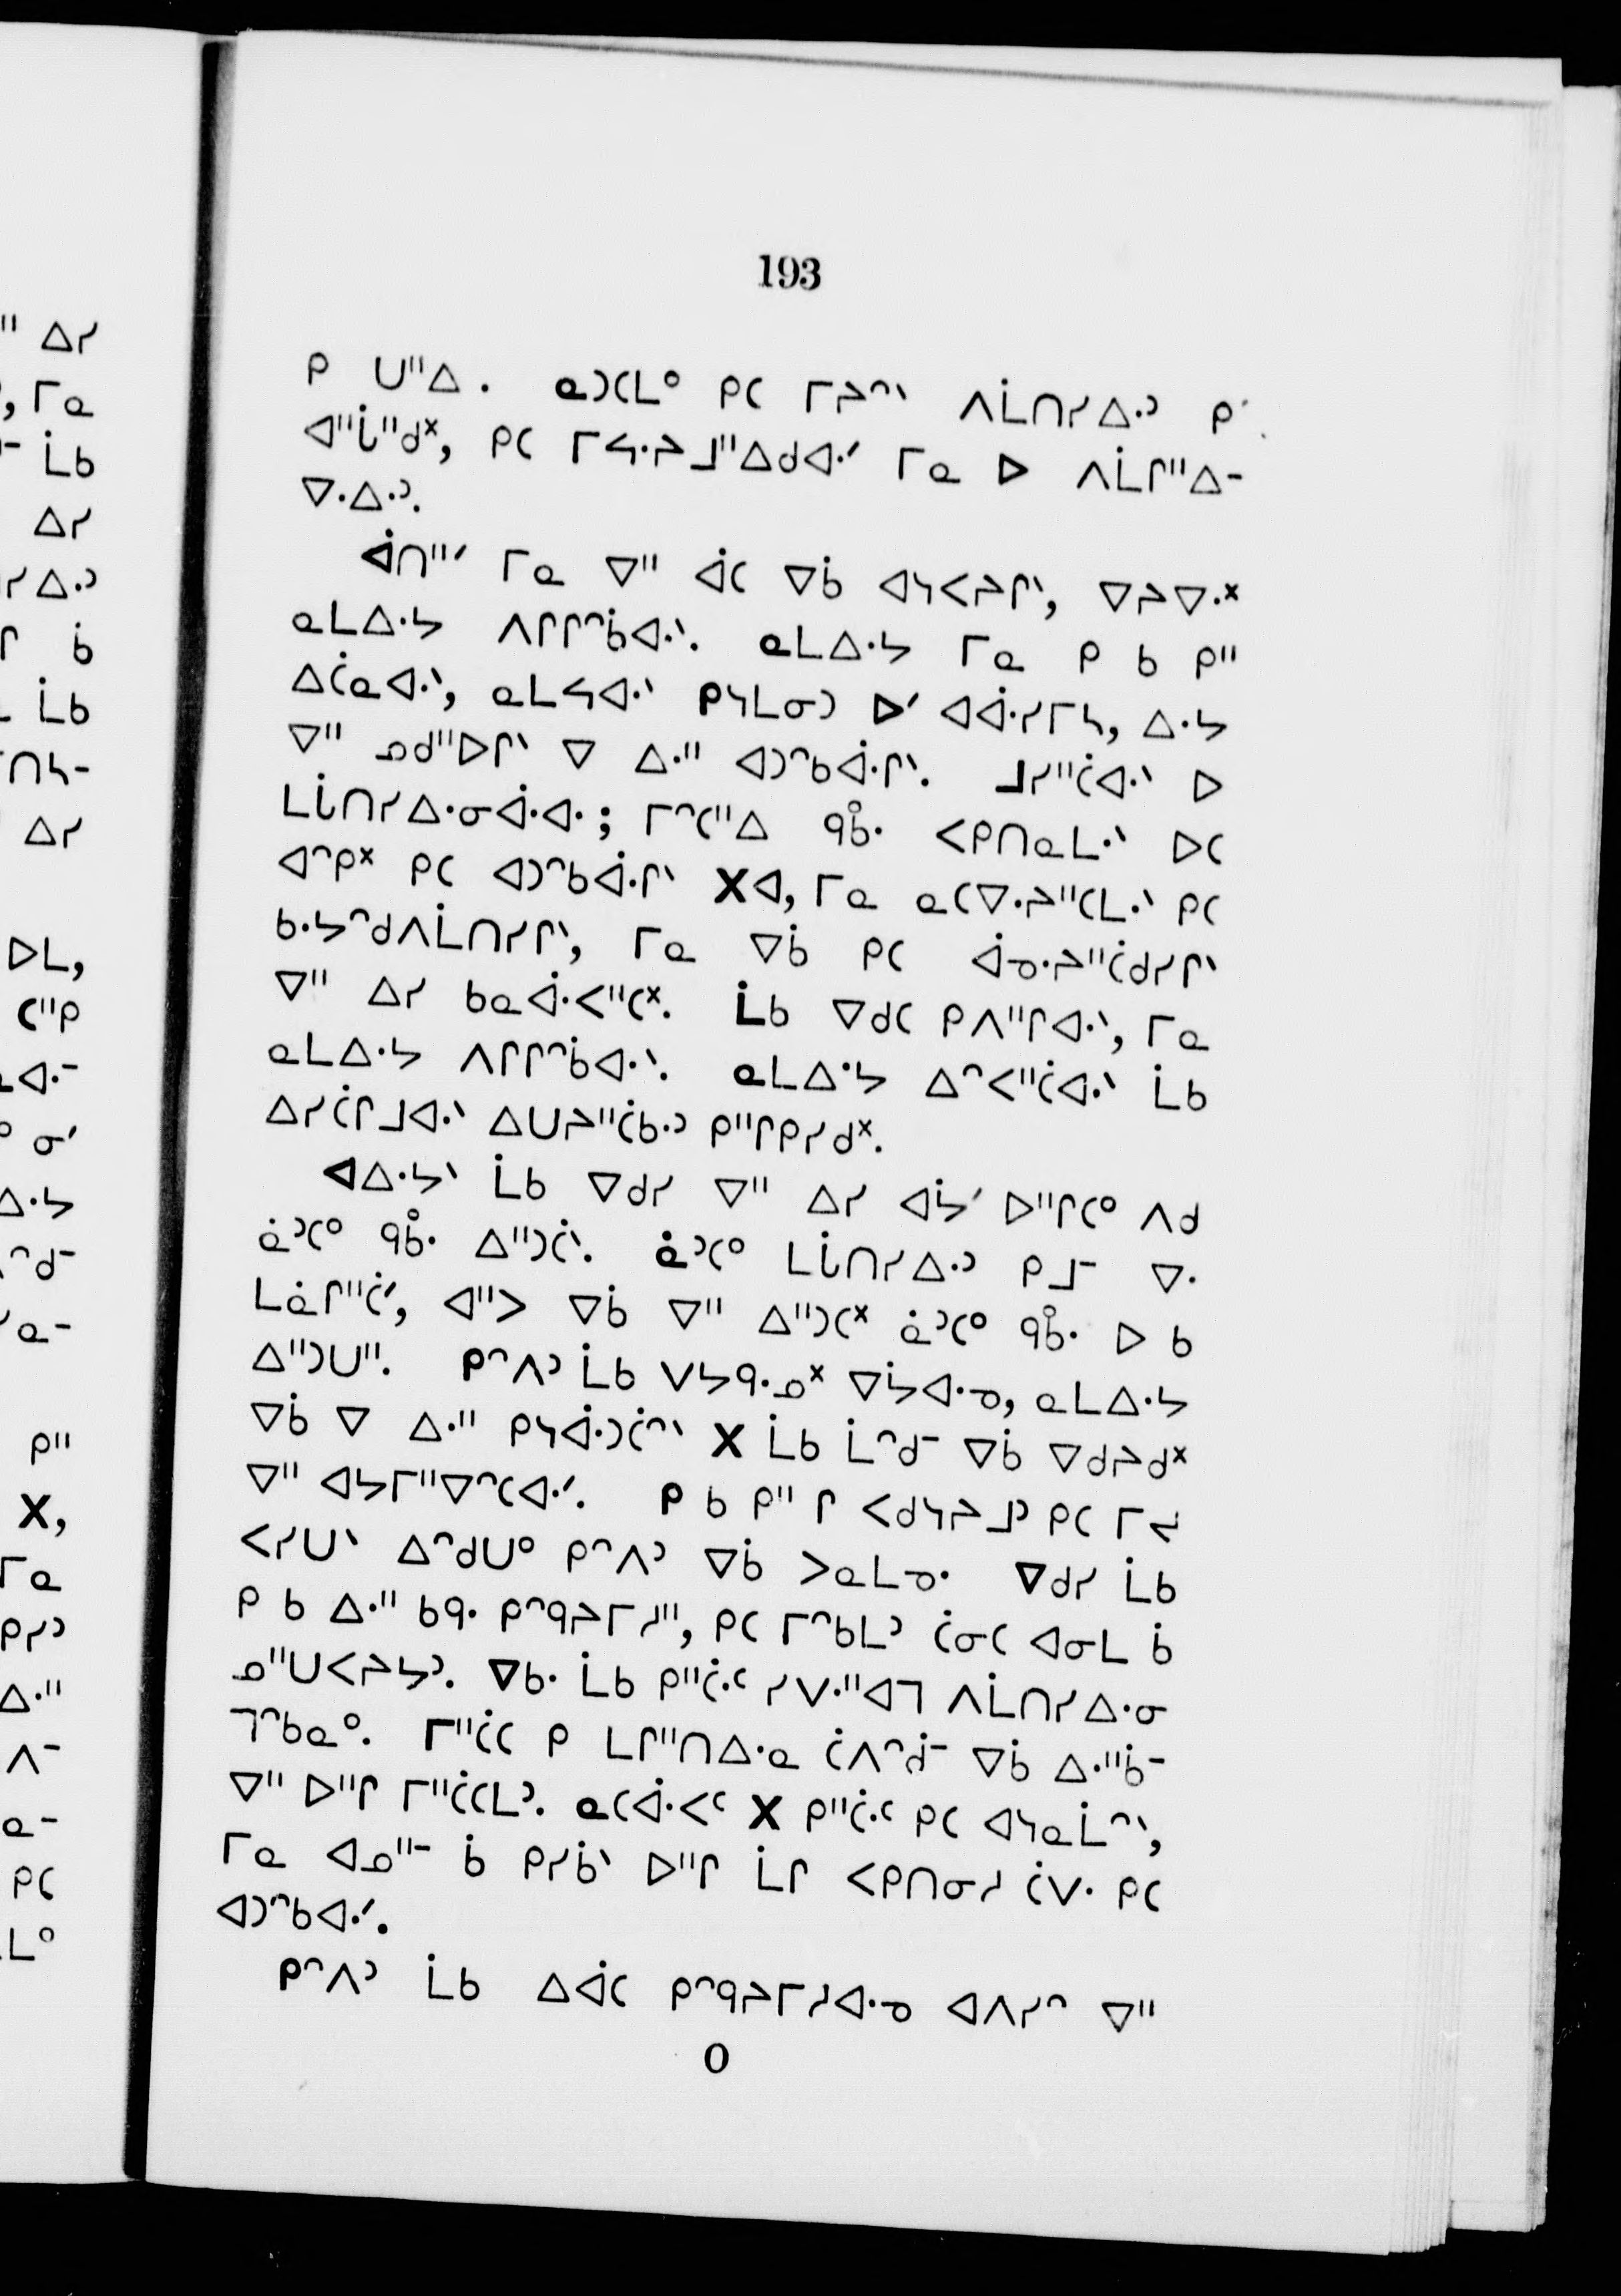 193
ᑭ ᑌᐦᐃ. ᓇᑐᑕᒪᐤ ᑭᑕ ᒥᔨᐢᐠ ᐱᒫᑎᓯᐃᐧᐣ ᑭ
ᐊᐦᒑᐦᑯᕽ, ᑭᑕ ᒥᓴᐧᔨᒧᐦᐃᑯᐊᐧᐟ ᒥᓇ ᐅ ᐱᒫᒋᐦᐃ-
ᐁᐧᐃᐧᐣ.
ᐋᑎᐦᐟ ᒥᓇ ᐁᐦ ᐋᑕ ᐁᑳ ᐊᔭᐸᔨᒋᐠ, ᐁᔨᐁᐧᕽ
ᓇᒪᐃᐧᔭ ᐱᒋᒋᐢᑳᐊᐧᐠ. ᓇᒪᐃᐧᔭ ᒥᓇ ᑭ ᑲ ᑭᐦ
ᐃᑖᓇᐊᐧᐠ, ᓇᒪᓴᐊᐧᐠ ᑭᓭᒪᓂᑐ ᐅᐟ ᐊᐋᐧᓯᒥᓴ, ᐃᐧᔭ
ᐁᐦ ᓄᑯᐦᐅᒋᐠ ᐁ ᐃᐧᐦ ᐊᑐᐢᑲᐋᐧᒋᐠ. ᒧᓯᐦᑖᐊᐧᐠ ᐅ
ᒪᒑᑎᓯᐃᐧᓂᐋᐧᐊᐧ; ᒥᐢᑕᐦᐃ ᑫᑳᐤᐧ ᐸᑭᑎᓇᒪᐧᐠ ᐅᑕ
ᐊᐢᑭᕽ ᑭᑕ ᐊᑐᐢᑲᐋᐧᒋᐠ Xᐊ, ᒥᓇ ᓇᑕᐁᐧᔨᐦᑕᒪᐧᐠ ᑭᑕ
ᑲᐧᔭᐢᑯᐱᒫᑎᓯᒋᐠ, ᒥᓇ ᐁᑳ ᑭᑕ ᐋᓀᐧᔨᐦᑖᑯᓯᒋᐠ
ᐁᐦ ᐃᓯ ᑲᓇᐋᐧᐸᐦᑕᕽ. ᒫᑲ ᐁᑯᑕ ᑭᐱᐦᒋᐊᐧᐠ, ᒥᓇ
ᓇᒪᐃᐧᔭ ᐱᒋᒋᐢᑳᐊᐧᐠ. ᓇᒪᐃᐧᔭ ᐃᐢᐸᐦᑖᐊᐧᐠ ᒫᑲ
ᐃᓯᑖᒋᒧᐊᐧᐠ ᐃᑌᔨᐦᑖᑲᐧᐣ ᑭᐦᒋᑭᓯᑯᕽ.
ᐊᐃᐧᔭᐠ ᒫᑲ ᐁᑯᓯ ᐁᐦ ᐃᓯ ᐊᔮᐟ ᐅᐦᒋᑕᐤ ᐱᑯ
ᓈᐣᑕᐤ ᑫᑳᐤᐧ ᐃᐦᑐᑖᐠ. ᓈᐣᑕᐤ ᒪᒑᑎᓯᐃᐧᐣ ᑭᒧᐨ ᐁᐧ
ᒪᓈᒋᐦᑖᐟ, ᐊᐦᐳ ᐁᑳ ᐁᐦ ᐃᐦᑐᑕᕽ ᓈᐣᑕᐤ ᑫᑳᐤᐧ ᐅ ᑲ
ᐃᐦᑐᑌᐦ. ᑭᐢᐱᐣ ᒫᑲ ᐯᔭᑫᐧᓄᕽ ᐁᔮᔭᐊᐧᓀ, ᓇᒪᐃᐧᔭ
ᐁᑳ ᐁ ᐃᐧᐦ ᑭᓭᐋᐧᑐᑖᐢᐠ X ᒫᑲ ᒫᐢᑯᐨ ᐁᑳ ᐁᑯᔨᑯᕽ
ᐁᐦ ᐊᔭᒥᐦᐁᐢᑕᐊᐧᐟ. ᑭ ᑲ ᑭᐦ ᒋ ᐸᑯᓭᔨᒧᐣ ᑭᑕ ᒥᔪ
ᐸᓯᑌᐠ ᐃᐢᑯᑌᐤ ᑭᐢᐱᐣ ᐁᑳ ᐳᓇᒪᓀᐧ ᐁᑯᓯ ᒫᑲ
ᑭ ᑲ ᐃᐧᐦ ᑲᑫᐧ ᑭᐢᑫᔨᒥᓱᐦ, ᑭᑕ ᒥᐢᑲᒪᐣ ᑖᓂᑕ ᐊᓂᒪ ᑳ
ᓄᐦᑌᐸᔨᔭᐣ. ᐁᑲᐧ ᒫᑲ ᑭᐦᑖᐧᑦ ᓯᐯᐧᐦᐊᒣ ᐱᒫᑎᓯᐃᐧᓂ
ᒣᐢᑲᓇᐤ. ᒥᐦᑖᑕ ᑭ ᒪᒋᐦᑎᐃᐧᓇ ᑖᐱᐢᑰᐨ ᐁᑳ ᐃᐧᐦᑳᐨ
ᐁᐦ ᐅᐦᒋ ᒥᐦᑖᑕᒪᐣ. ᓇᑕᐋᐧᐸᑦ X ᑭᐦᑖᐧᑦ ᑭᑕ ᐊᓭᓇᒫᐢᐠ,
ᒥᓇ ᐊᓄᐦᐨ ᑳ ᑭᓯᑳᐠ ᐅᐦᒋ ᒫᒋ ᐸᑭᑎᓂᓱ ᑖᐯᐧ ᑭᑕ
ᐊᑐᐢᑲᐊᐧᐟ.
ᑭᐢᐱᐣ ᒫᑲ ᐃᐋᑕ ᑭᐢᑫᔨᒥᓱᐊᐧᓀ ᐊᐱᓯᐢ ᐁᐦ
O